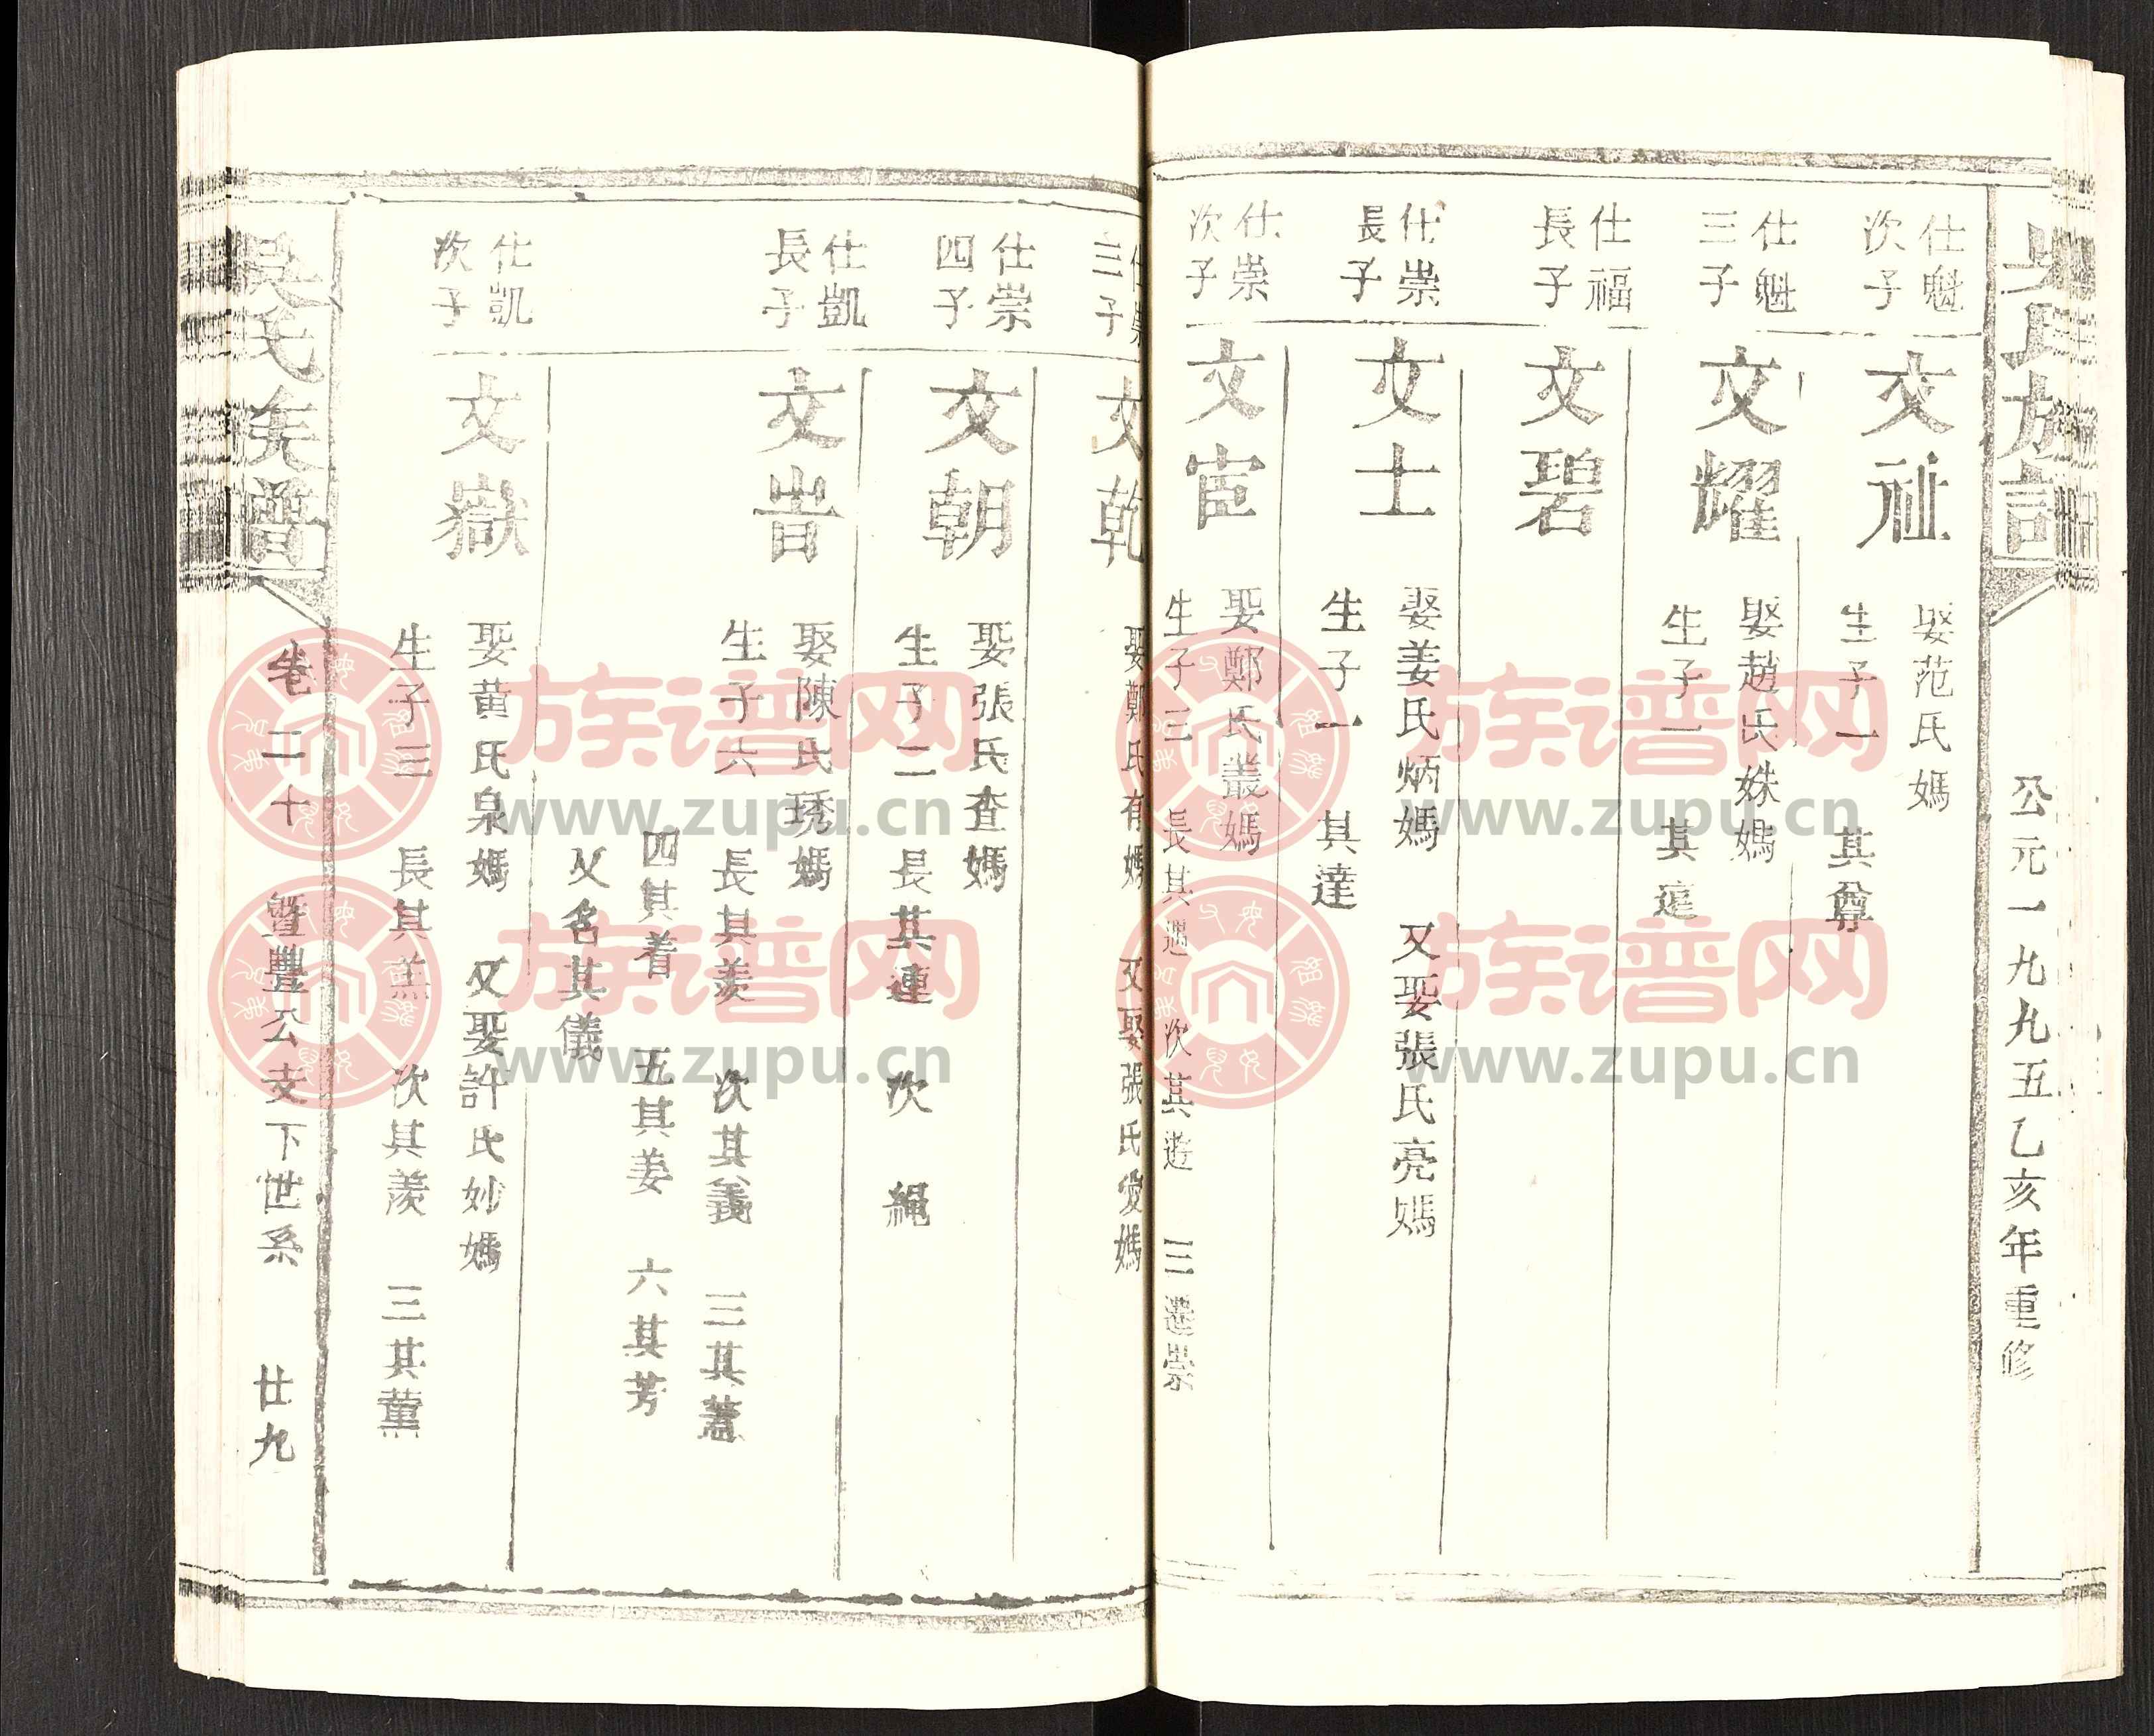 吳氏族譜
公元一九九五乙亥年重修
仕魁
次子
文祉
娶范氏媽
生子一 其尊
仕魁
三子
文耀
娶趙氏姝媽
生子一 其
仕福
長子
文碧
仕崇
長子
文士
娶姜氏炳媽 又娶張氏亮媽
生子一 其達
仕崇
次子
文宦
娶鄭氏叢媽
生子三 長其遇 次其遊 三 崇
仕崇
三子
文乾
娶鄭氏有媽 又娶張氏愛媽
仕崇
四子
文朝
娶張氏查媽
生子二 長其連 次 繩
仕凱
長子
文岩
娶陳氏琇媽
生子六 長其羨 次其義 三其蓋
四其着 五其姜 六其芳
又名其儀
仕凱
次子
文嶽
娶黃氏泉媽 又娶許氏妙媽
生子三 長其羔 次其羨 三其薰
吳氏族譜
卷二十 暨豐公支下世系 廿九
族谱网
www.zupu.cn
族谱网
www.zupu.cn
族谱网
www.zupu.cn
族谱网
www.zupu.cn